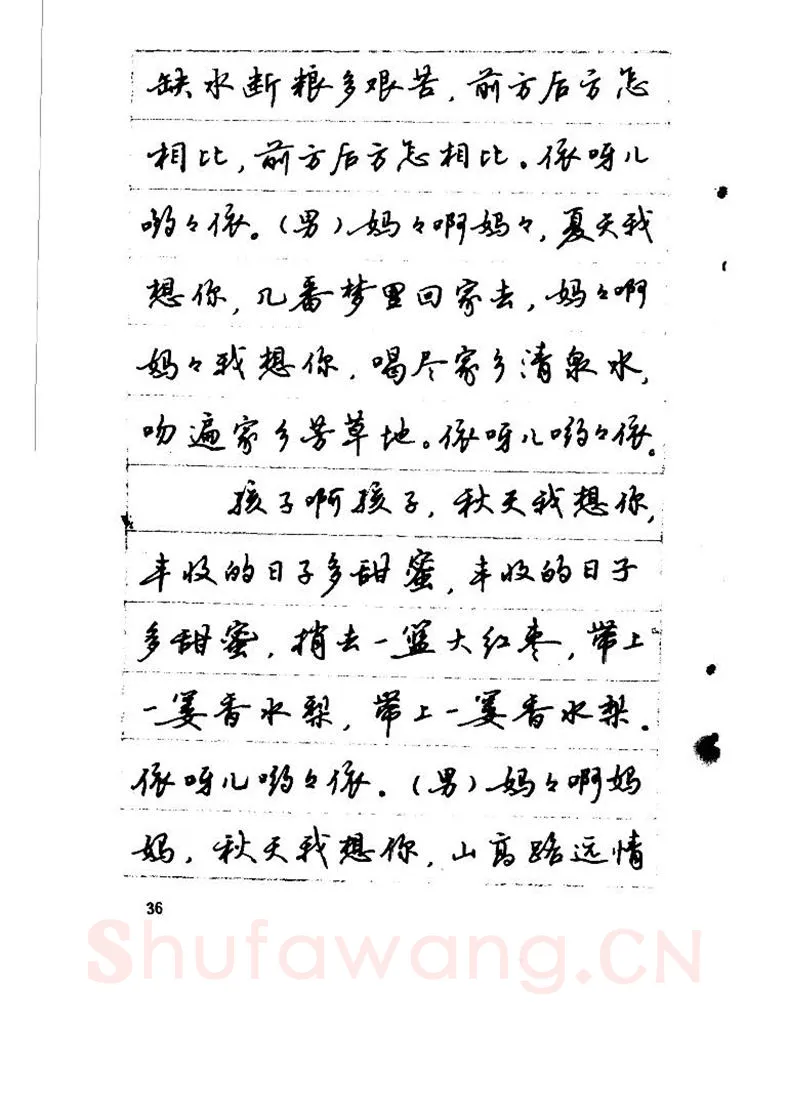 缺水断粮多艰苦，前方后方怎
相比，前方后方怎相比。依呀儿
哟々依。（男）妈々啊妈々，夏天我
想你，几番梦里回家去，妈々啊
妈々我想你，喝尽家乡清泉水，
吻遍家乡芳草地。依呀儿哟々依。
孩子啊孩子，秋天我想你，
丰收的日子多甜蜜，丰收的日子
多甜蜜，捎去一篮大红枣，带上
一篓香水梨，带上一篓香水梨。
依呀儿哟々依。（男）妈々啊妈
妈，秋天我想你，山高路远情
36
Shufawang.CN